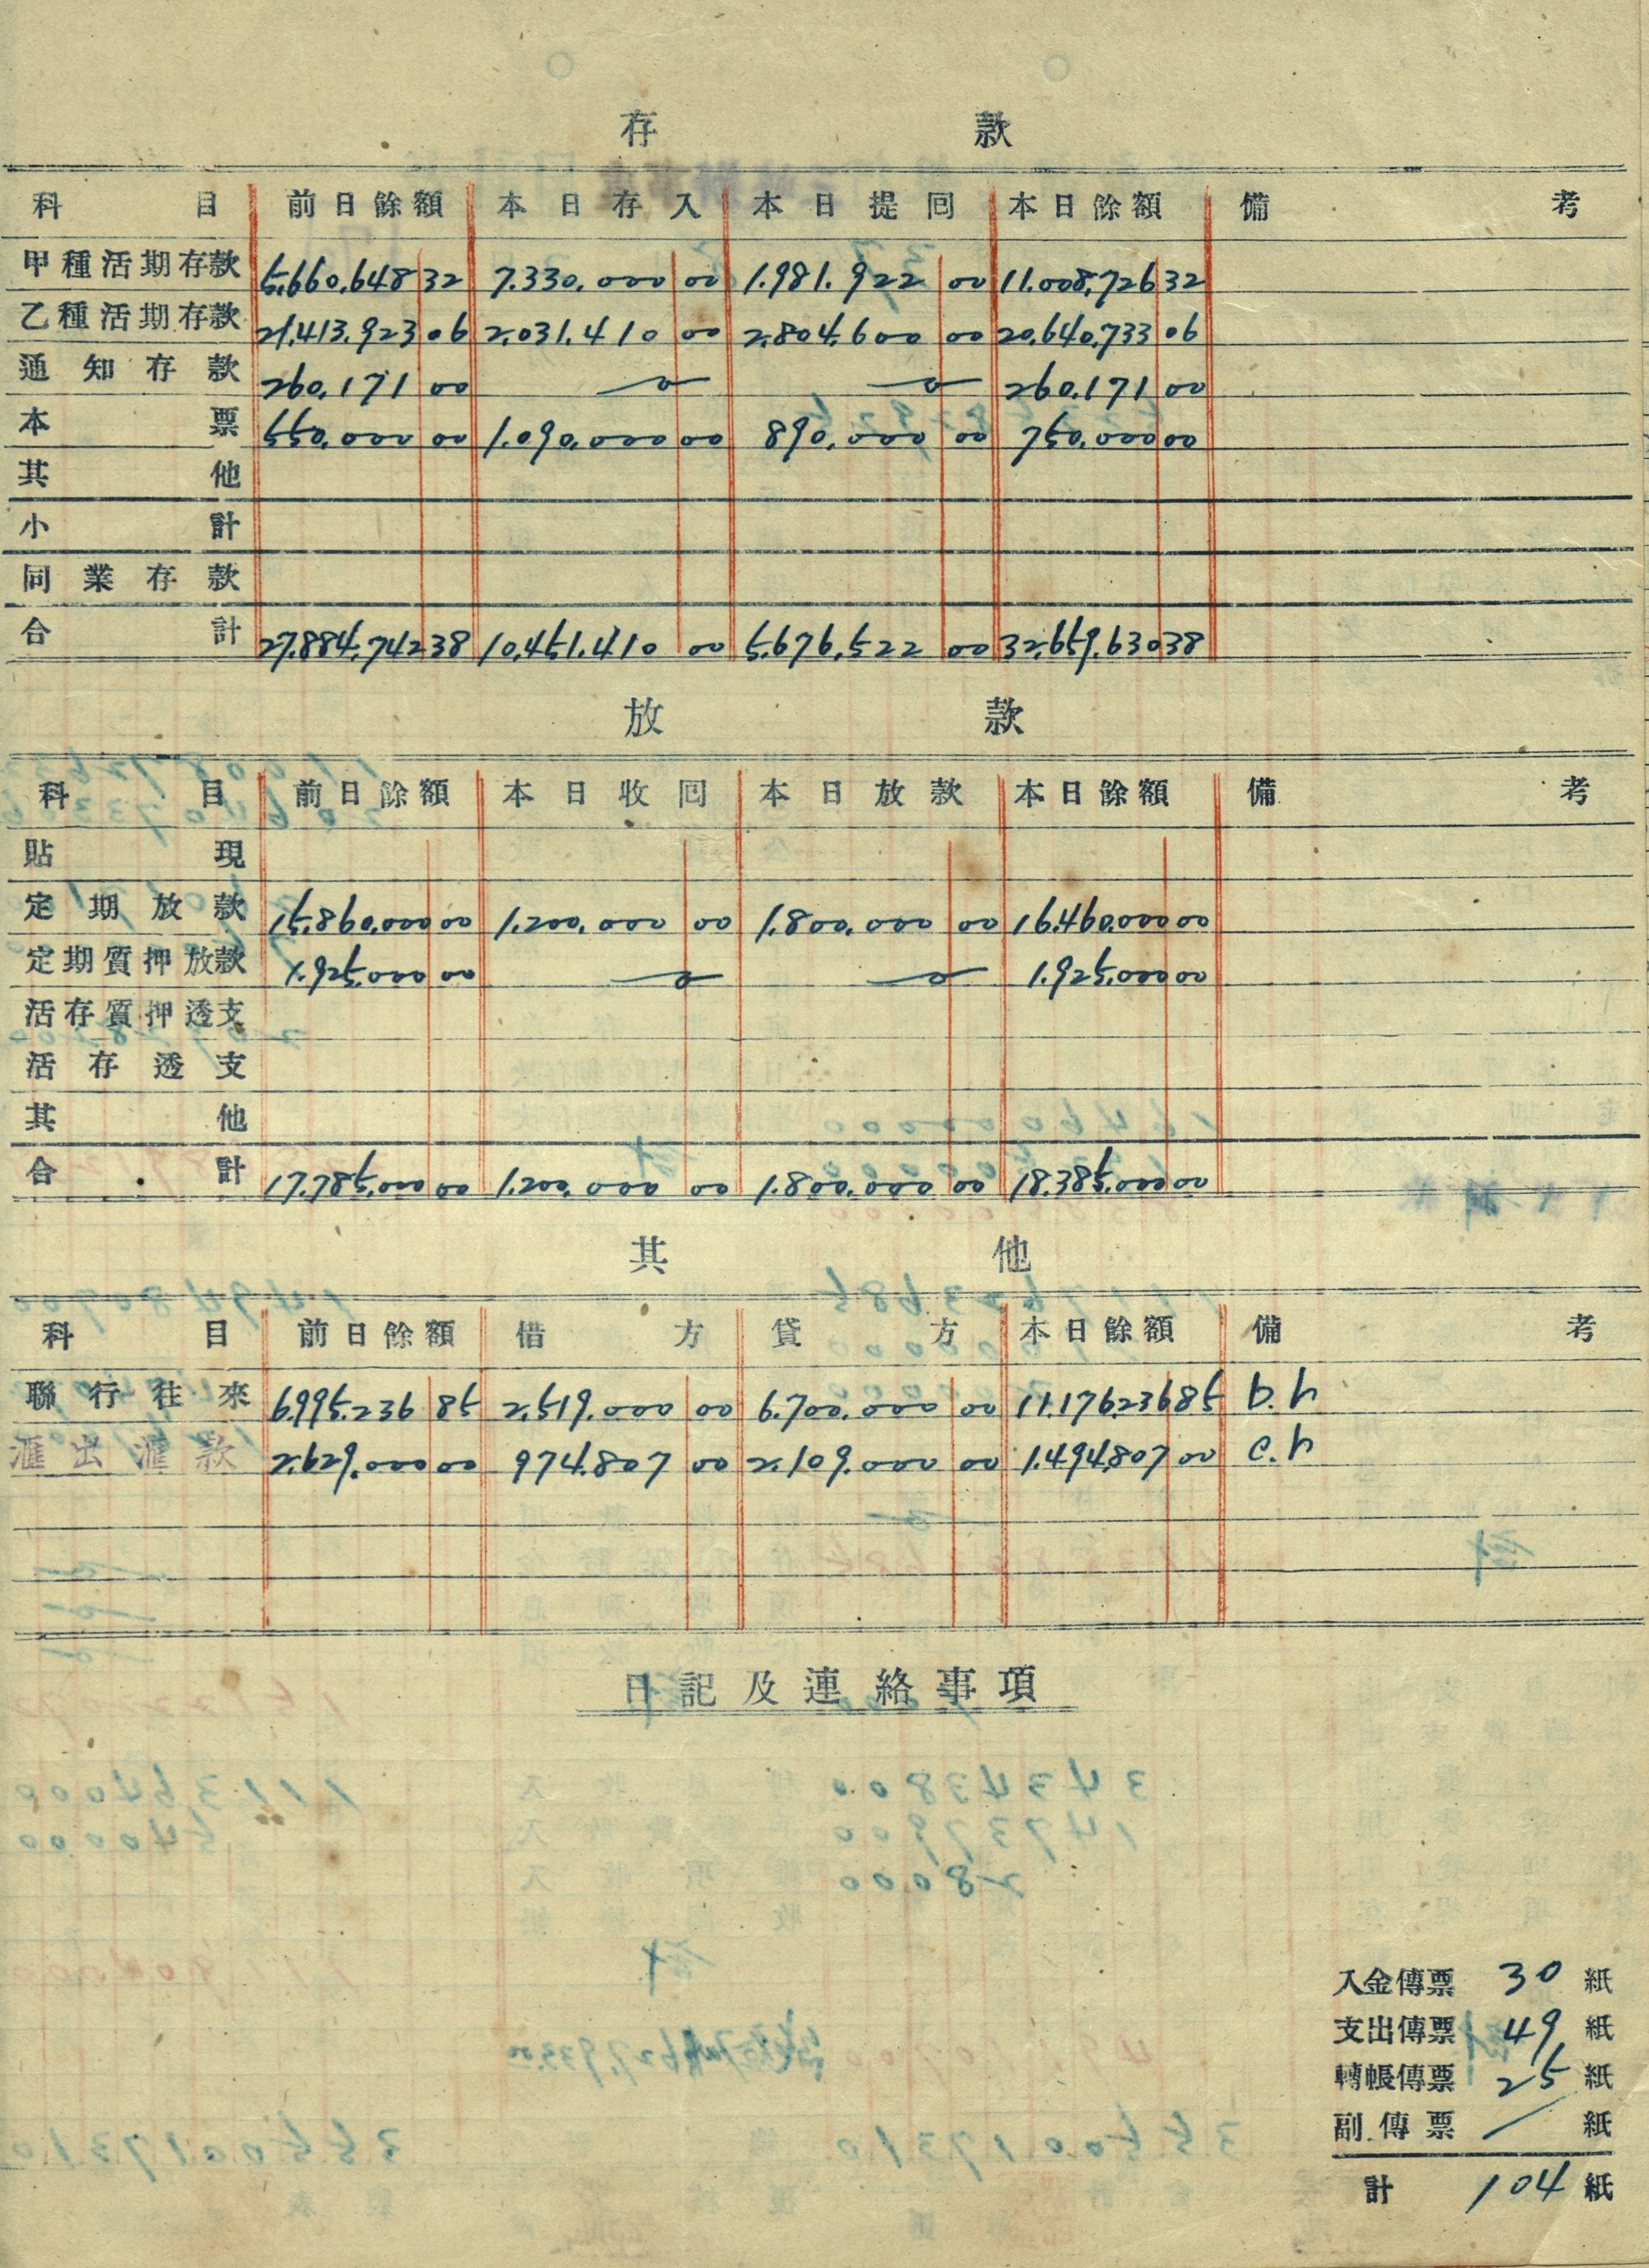 存款
科目 前日餘額 本日存入 本日提回 本日餘額 備考
甲種活期存款 5,660,648 32 7,330,000 00 1,981,922 00 11,008,726 32
乙種活期存款 21,413,923 06 2,031,410 00 2,804,600 00 20,640,733 06
通知存款 260,171 00 260,171 00
本票 550,000 00 1,090,000 00 890,000 00 750,000 00
其他
小計
同業存款
合計 27,884,742 38 10,451,410 00 5,676,522 00 32,659,630 38
放款
科目 前日餘額 本日收回 本日放款 本日餘額 備考
貼現
定期放款 15,860,000 00 1,200,000 00 1,800,000 00 16,460,000 00
定期質押放款 1,925,000 00 1,925,000 00
活存質押透支
活存透支
其他
合計 17,785,000 00 1,200,000 00 1,800,000 00 18,385,000 00
其他
科目 前日餘額 借方 貸方 本日餘額 備考
聯行往來 6,995,236 85 2,519,000 00 6,700,000 00 11,176,236 85 D.h
滙出滙款 2,629,000 00 974,807 00 2,109,000 00 1,494,807 00 C.h
日記及連絡事項
入金傳票 30 紙
支出傳票 49 紙
轉帳傳票 25 紙
副傳票 / 紙
計 104 紙